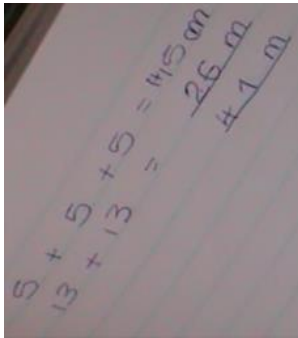 5 + 5 + 5 = 15 m
13 + 13 = 26 m
41 m